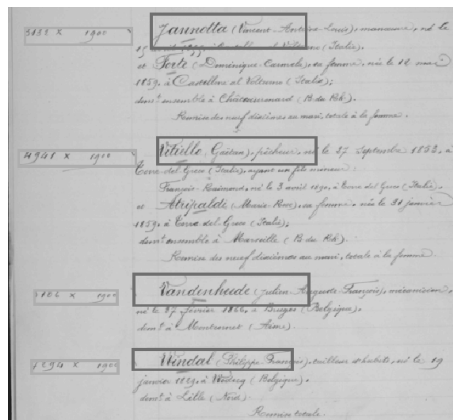 3132 X 1900 Jannotta (Vincent-Antoine-Louis), manœuvre, né le
15 à Castellino al Volturno (Italie),
et Forte (Dominique-Carmela), sa femme, née le 12 mars
1859, à Castellino al Volturno (Italie);
dem.t ensemble à (B. du Rh.).
Remise des neuf dixièmes au mari, totale à la femme.
4941 X 1900 Vitiello (Gaëtan), pêcheur, né le 27 Septembre 1853, à
Torre del Greco (Italie), ayant un fils mineur:
François-Raimond, né le 3 avril 1890, à Torre del Greco (Italie),
et Atripalde (Marie-Rose), sa femme, née le 31 janvier
1859, à Torre del Greco (Italie);
dem.t ensemble à Marseille (B. du Rh.).
Remise des neuf dixièmes au mari, totale à la femme.
X 1900 Vandenheede (Julien-Auguste-François),
né le 27 février 1866, à Bruges (Belgique),
dem.t à (Aisne).
X 1900 Windal (Philippe-François), tailleur d'habits, né le 19
janvier à (Belgique),
dem.t à Lille (Nord).
Remise totale.